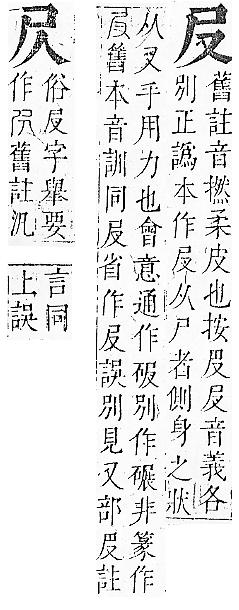 㞋
舊註音撚柔皮也按𠬝㞋音義各
別正譌本作㞋从尸者側身之狀
从叉手用力也會意通作別作碾非篆作
舊本音訓同㞋省作㞋誤別見又部𠬝註
俗㞋字舉要
作舊註汎
言同
上誤